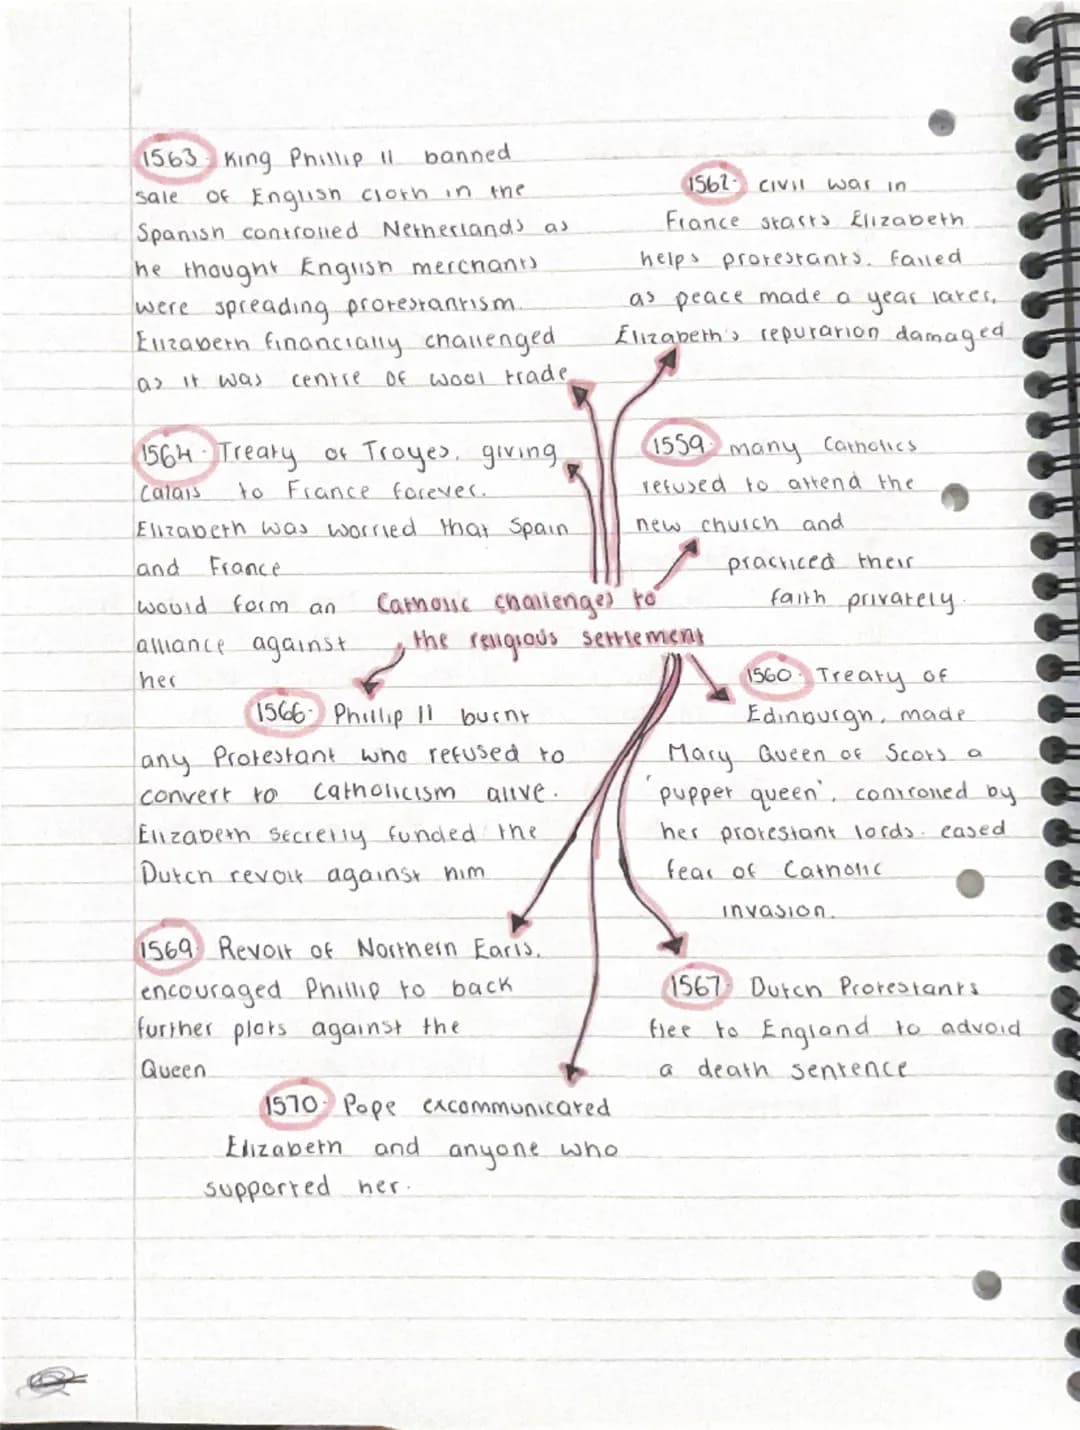 1563. King Phillip II banned
sale of English cloth in the
Spanish controlled Netherlands as
he thought English merchants
were spreading protestantism.
Elizabeth financially challenged
as it was centre of wool trade
1562. civil war in
France starts Elizabeth
helps protestants. failed
as peace made a year later,
Elizabeth's reputation damaged
1564. Treaty of Troyes, giving
Calais to France forever.
Elizabeth was worried that Spain
and France
would form an
alliance against
her
1559. many Catholics
refused to attend the
new church and
practiced their
faith privately.
Catholic challenges to
the religious settlement
1566. Phillip II burnt
any Protestant who refused to
convert to Catholicism alive.
Elizabeth secretly funded the
Dutch revolt against him
1560. Treaty of
Edinburgh, made
Mary Queen of Scots a
'puppet queen', controlled by
her protestant lords. eased
fear of Catholic
invasion.
1569. Revolt of Northern Earls,
encouraged Phillip to back
further plots against the
Queen
1567. Dutch Protestants
flee to England to advoid
a death sentence
1570. Pope excommunicated
Elizabeth and anyone who
supported her.